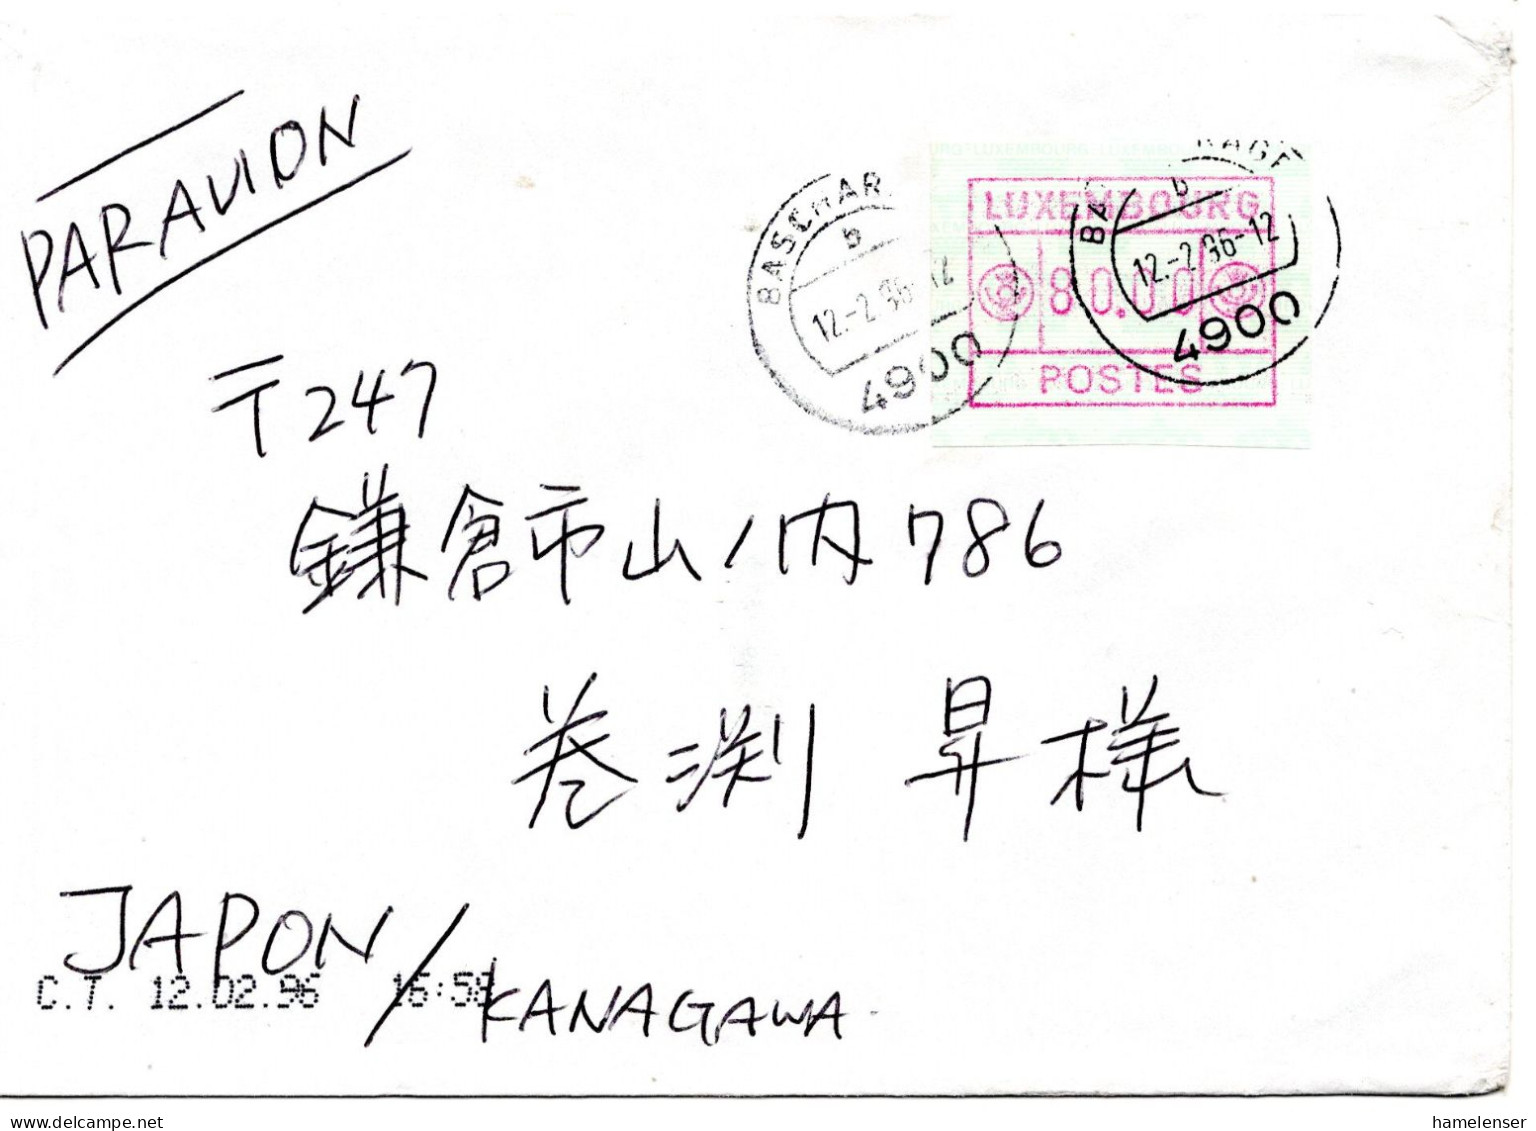 PAR AVION
LUXEMBOURG
80.00
POSTES
BASCHAR
b
12.-2.96-12
4900
b
12.-2.96-12
4900
〒247
鎌倉市山ノ内786
巻渕 昇様
JAPON/KANAGAWA
C.T. 12.02.96 16:58
hamelenser